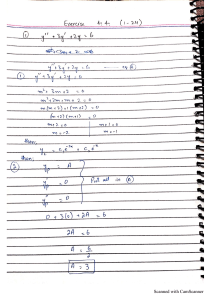 Exercise 4.4 (1-24)
① y'' + 3y' + 2y = 6
y'' + 3y' + 2y = 6
① y'' + 3y' + 2y = 0
m² + 3m + 2 = 0
m² + 2m + m + 2 = 0
m(m+2) + 1(m+2) = 0
(m+2)(m+1) = 0
m+2 = 0 m+1 = 0
m = -2 m = -1
then,
y_c = c₁e^-2x + c₂e^-x
then:
② y_p = A
y'_p = 0 Put all in
y''_p = 0
0 + 3(0) + 2A = 6
2A = 6
A = 6/2
A = 3
Scanned with CamScanner